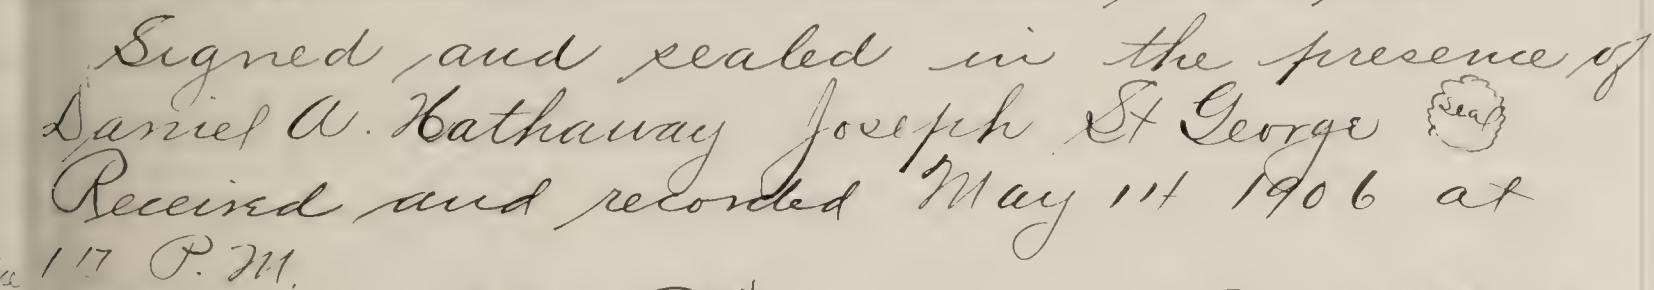 Signed and sealed in the presence of
Daniel A. Hathaway Joseph St George Seal
Received and recorded May 14 1906 at
1 17 P. M.